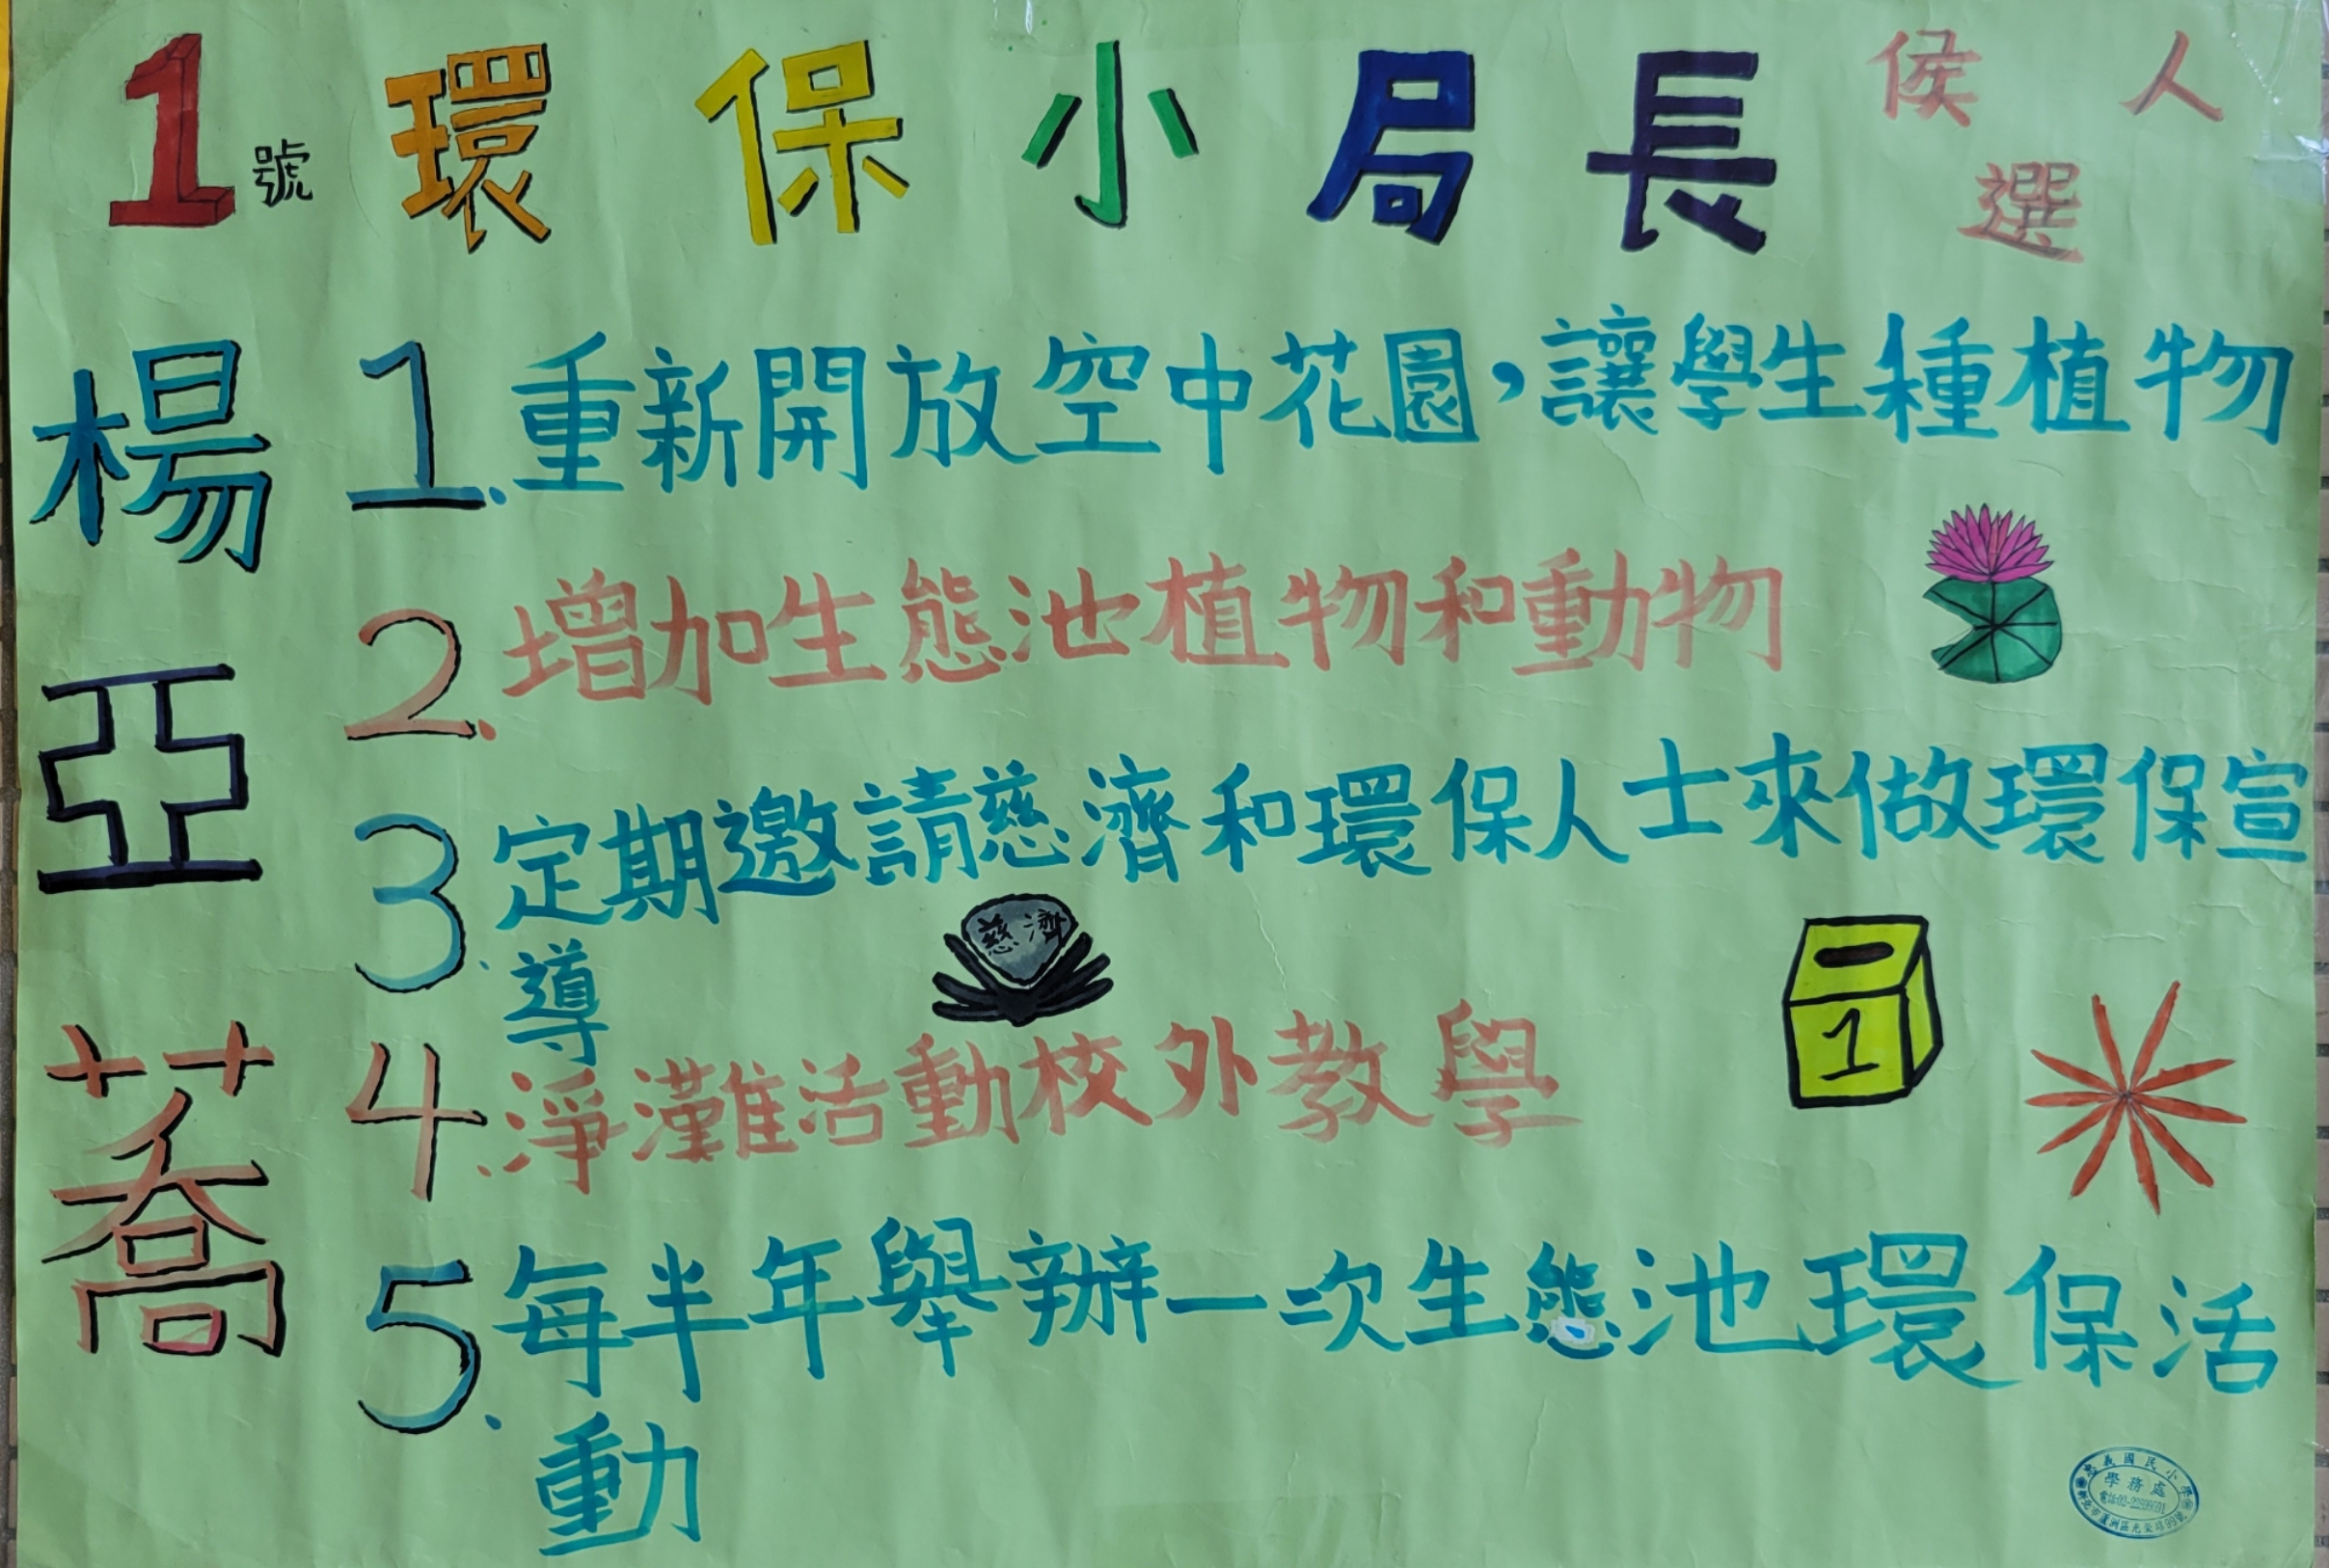 1號 環保小局長 侯選人
楊亞蕎
1. 重新開放空中花園，讓學生種植物
2. 增加生態池植物和動物
3. 定期邀請慈濟和環保人士來做環保宣
導
慈濟
1
4. 淨灘活動校外教學
5. 每半年舉辦一次生態池環保活
動
忠義國民小學
學務處
新北市蘆洲區光榮路99號